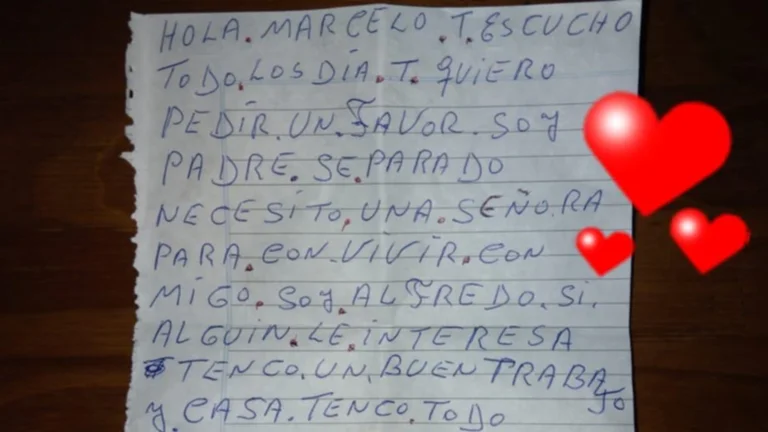 HOLA. MARCELO. T. ESCUCHO
TODO. LOS DÍA. T. QUIERO
PEDIR. UN. FAVOR. SOY
PADRE. SE. PARADO
NECESITO, UNA. SEÑO. RA
PARA. CON. VIVIR. CON
MIGO. SOY. ALFREDO. SI.
ALGUIN. LE. INTERESA
TENCO. UN. BUEN TRABAJO
Y. CASA. TENCO. TODO